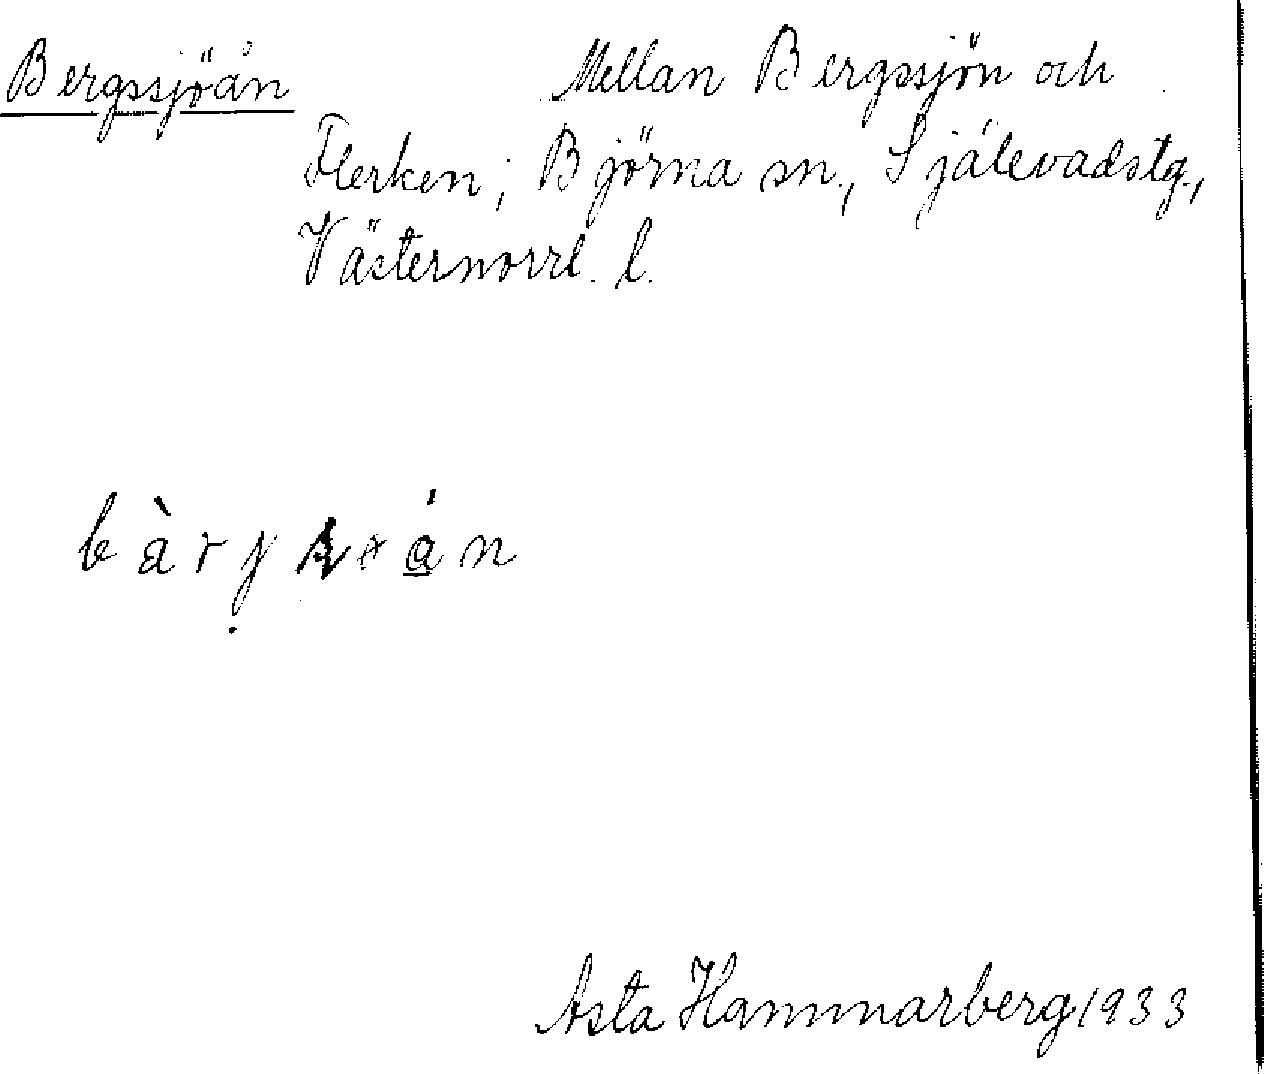 Bergssjöån Mellan Bergssjön och
Flerken; Björna sn., Själevadstg.,
Västernorrl. l.
Asta Hammarberg 1933